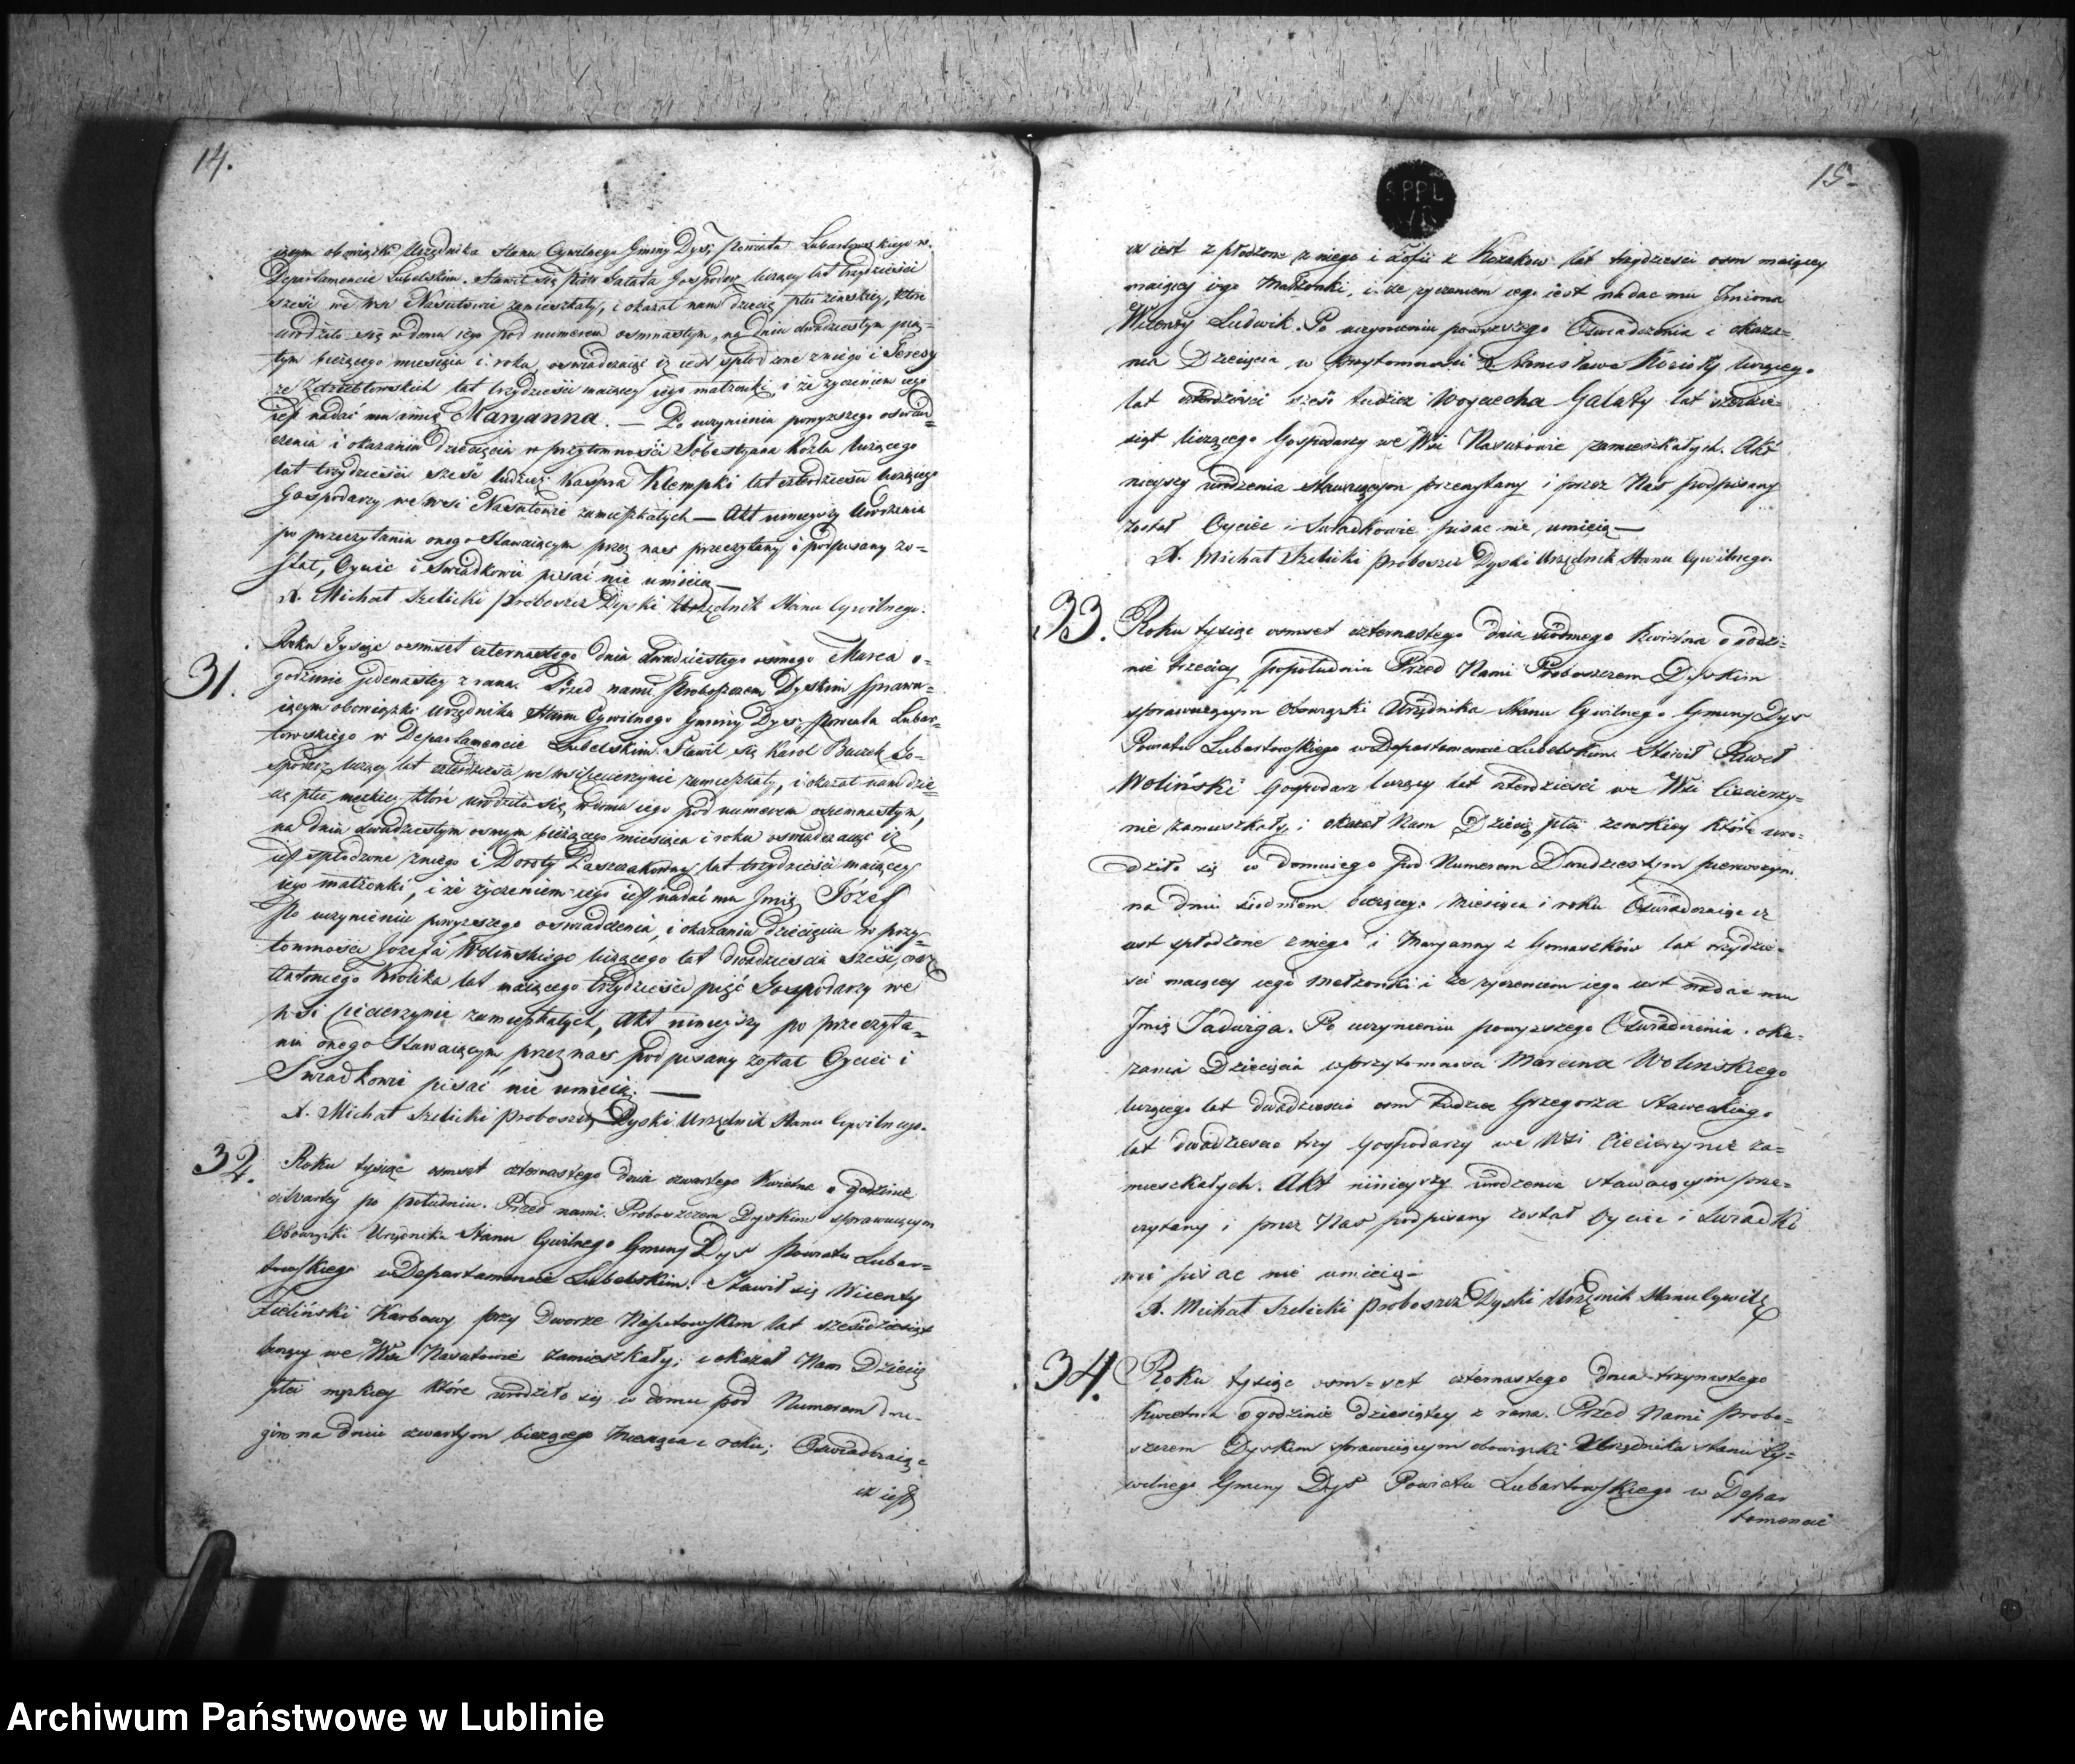 14.
iącym obowiązki Urzędnika Stanu Cywilnego Gminy Dys, Powiatu Lubartowskiego w
Departamencie Lubelskim. Stawił się Piotr Galata Gospodarz liczący lat trzydzieści
sześć we Wsi Nasutowie zamieszkały, i okazał nam dziecię płci żeńskiey, które
urodziło się w domu iego pod numerem osmnastym, na dniu dwudziestym pią=
tym bieżącego miesiąca i roku, oswiadczaiąc iż iest spłodzone z niego i Teresy
ze lat trzydzieści maiącey iego małżonki, i że życzeniem iego
iest nadać mu imię Maryanna. — Po uczynieniu powyższego oswiad=
czenia i okazaniu dziecięcia w przytomności Sobestyana Kozła liczącego
lat trzydzieści sześć tudzież Kaspra Klempki lat czterdzieści liczącego
Gospodarzy we wsi Nasutowie zamieszkałych — Akt ninieyszy Urodzenia
po przeczytaniu onego Stawaiącym przez nas przeczytany i podpisany zo=
stał, Oyciec i Swiadkowie pisać nie umieią —
X. Michał Szelicki Proboszcz Dyski Urzędnik Stanu Cywilnego.
31.
Roku Tysiąc osmset czternastego dnia Dwudziestego osmego Marca o=
godzinie jedenastey z rana. Przed nami Proboszczem Dyskim sprawu=
iącym obowiązki Urzędnika Stanu Cywilnego Gminy Dys, Powiatu Lubar=
towskiego w Departamencie Lubelskim. Stawił się Karol Buczek Go=
spodarz liczący lat czterdzieści we wsi Ciecierzynie zamieszkały, i okazał nam dzie=
cię płci męzkiey, które urodziło się w domu iego pod numerem osiemnastym,
na dniu dwudziestym osmym bieżącego miesiąca i roku oswiadczaiąc iż
iest spłodzone z niego i Doroty lat trzydzieści maiącey
iego małżonki, i że życzeniem iego iest nadać mu Imię Józef
Po uczynieniu powyższego oswiadczenia, i okazaniu dziecięcia w przy=
tomności Jozefa Wolińskiego liczącego lat dwadzieścia sześć, oraz
Antoniego Krolika lat maiącego trzydzieści pięć Gospodarzy we
Wsi Ciecierzynie zamieszkałych, Akt ninieyszy po przeczyta=
niu onego Stawaiącym przez nas podpisany został Oyciec i
Swiadkowie pisać nie umieią. —
X. Michał Szelicki Proboszcz Dyski Urzędnik Stanu Cywilnego.
32.
Roku tysiąc osmset czternastego dnia czwartego Kwietnia o godzinie
czwartey po południu. Przed nami Proboszczem Dyskim sprawuiącym
Obowiązki Urzędnika Stanu Cywilnego Gminy Dys Powiatu Lubar=
towskiego w Departamencie Lubelskim. Stawił się Wicenty
Zieliński Karbowy przy Dworze Nasutowskim lat sześćdziesiąt
liczący we Wsi Nasutowie zamieszkały, i okazał Nam Dziecię
płci męzkiey które urodziło się w domu pod Numerem dru-
gim na dniu czwartym bieżącego Miesiąca i roku; Oświadczaiąc
iż iest
15.
SPPL
iż iest z płodzone z niego i Zofii z Kozekow lat trzydzieści osm maiącey
maiącey iego Małżonki, i że życzeniem iego iest nadac mu Jmiona
Wicenty Ludwik. Po uczynieniu powyższego Oświadczenia i okaza=
nia Dziecięcia w przytomności Stanisława Kósioły liczącego
lat czterdzieści sześć tudzież Woyciecha Galaty lat
siąt liczącego Gospodarzy we Wsi Nasutowie zamieszkałych. Akt
nieyszy urodzenia Stawaiącym przeczytany i przez Nas podpisany
został Oyciec i Swiadkowie pisac nie umieią —
X. Michał Szelicki Proboszcz Dyski Urzędnik Stanu Cywilnego.
33.
Roku tysiąc osmset czternastego dnia siodmego Kwietnia o godzi=
nie trzeciey popołudniu Przed Nami Proboszczem Dyskim
sprawuiącym Obowiązki Urzędnika Stanu Cywilnego Gminy Dys
Powiatu Lubartowskiego w Departamencie Lubelskim. Stawił Paweł
Woliński Gospodarz liczący lat czterdzieści we Wsi Ciecierzy=
nie zamieszkały i okazał Nam Dziecię płci żenskiey które uro=
dziło się w domu iego pod Numerem Dwudziestym pierwszym
na dniu siodmem bieżącego Miesiąca i roku Oświadczaiąc iż
iest spłodzone z niego i Maryanny z Gomaszków lat trzydzie=
sci maiącey iego Małżonki i że życzeniem iego iest nadac mu
Jmię Jadwiga. Po uczynieniu powyższego Oświadczenia i oka=
zania Dziecięcia w przytomności Marcina Wolinskiego
liczącego lat dwadziescia osm tudzież Grzegorza Staweckiego
lat dwadziescia trzy Gospodarzy we Wsi Ciecierzynie za=
mieszkałych. Akt ninieyszy urodzenia stawaiącym prze=
czytany i przez Nas podpisany został Oyciec i Swiadko
wie pisac nie umieią —
X. Michał Szelicki Proboszcz Dyski Urzędnik Stanu Cywil:
34.
Roku tysiąc osm=set czternastego dnia trzynastego
Kwietnia o godzinie dziesiątey z rana. Przed Nami Probo=
szczem Dyskim sprawuiącym obowiązki Urzędnika Stanu Cy=
wilnego Gminy Dys Powiatu Lubartowskiego w Depar
tamencie
Archiwum Państwowe w Lublinie